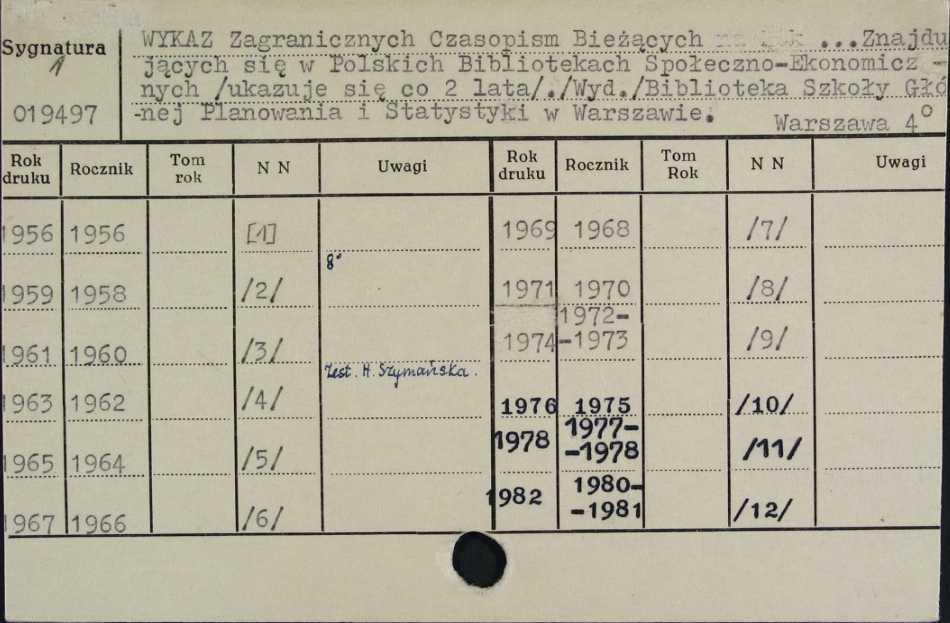 Sygnatura
1
019497
WYKAZ Zagranicznych Czasopism Bieżących ...Znajdu
jących się w Polskich Bibliotekach Społeczno-Ekonomicz -
nych /ukazuje się co 2 lata/./Wyd./Biblioteka Szkoły Głó
-nej Planowania i Statystyki w Warszawie.
Warszawa 4°
Rok druku Rocznik Tom rok N N Uwagi Rok druku Rocznik Tom Rok N N Uwagi
1956 1956 [1] 1969 1968 /7/
8°
1959 1958 /2/ 1971 1970 /8/
1961 1960 /3/ 1974 1972-
-1973 /9/
Zest. H. Szymańska.
1963 1962 /4/ 1976 1975 /10/
1965 1964 /5/ 1978 1977-
-1978 /11/
1967 1966 /6/ 1982 1980-
-1981 /12/